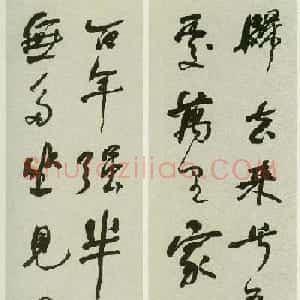 歸去来兮
處萬里家
百年强半
無多坐見
Shufaziliao.COM